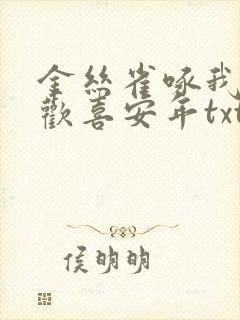 金丝雀啄我
歡喜安年txt
侯明明